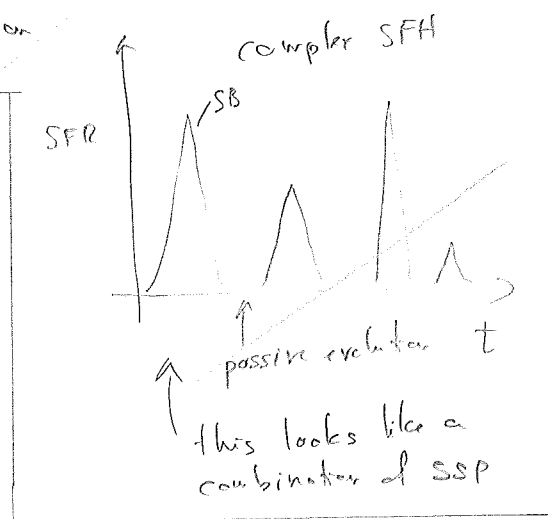 on
compler SFH
SB
SFR
passive evolution t
this looks like a
combination of SSP